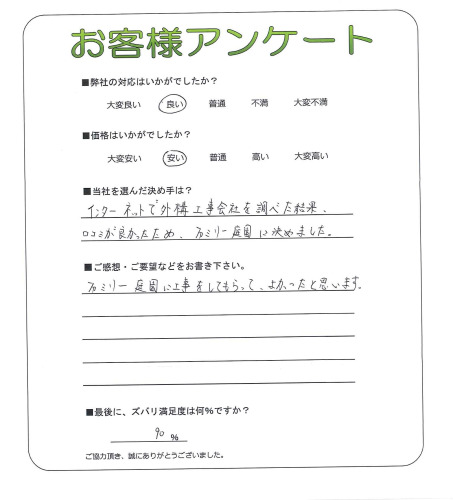 お客様アンケート
■弊社の対応はいかがでしたか？
大変良い 良い 普通 不満 大変不満
■価格はいかがでしたか？
大変安い 安い 普通 高い 大変高い
■当社を選んだ決め手は？
インターネットで外構工事会社を調べた結果、
口コミが良かったため、ファミリー庭園に決めました。
■ご感想・ご要望などをお書き下さい。
ファミリー庭園に工事をしてもらって、よかったと思います。
■最後に、ズバリ満足度は何％ですか？
90 ％
ご協力頂き、誠にありがとうございました。